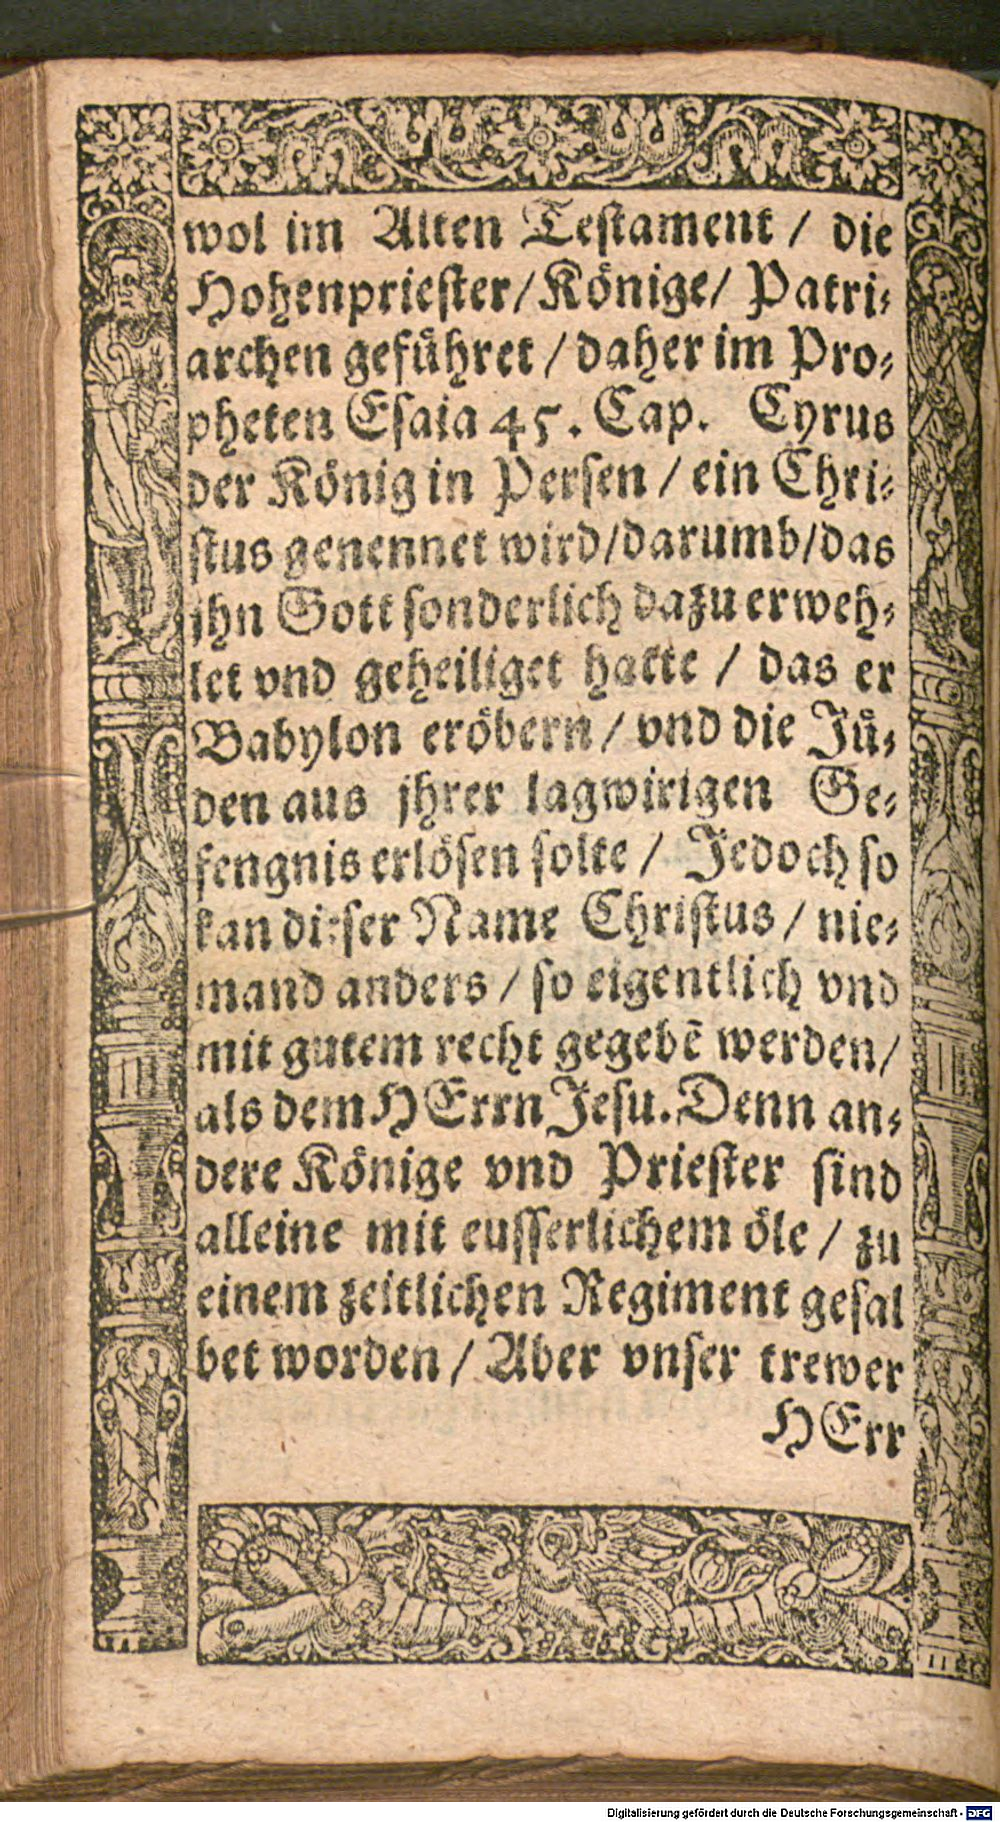 wol im Alten Testament / die
Hohenpriester/ Könige/ Patri⸗
archen geführet / daher im Pro⸗
pheten Esaia 45. Cap. Cyrus
der König in Persen / ein Chri⸗
stus genennet wird/darumb/das
jhn Gott sonderlich dazu erweh⸗
let vnd geheiliget hatte / das er
Babylon eröbern / vnd die Jü⸗
den aus jhrer lagwirigen Ge⸗
fengnis erlösen solte / Jedoch so
kan dieser Name Christus / nie⸗
mand anders / so eigentlich vnd
mit gutem recht gegebē werden/
als dem HErrn Jesu. Denn an⸗
dere Könige vnd Priester sind
alleine mit eusserlichem öle / zu
einem zeitlichen Regiment gesal
bet worden / Aber vnser trewer
HErr
Digitalisierung gefördert durch die Deutsche Forschungsgemeinschaft - DFG